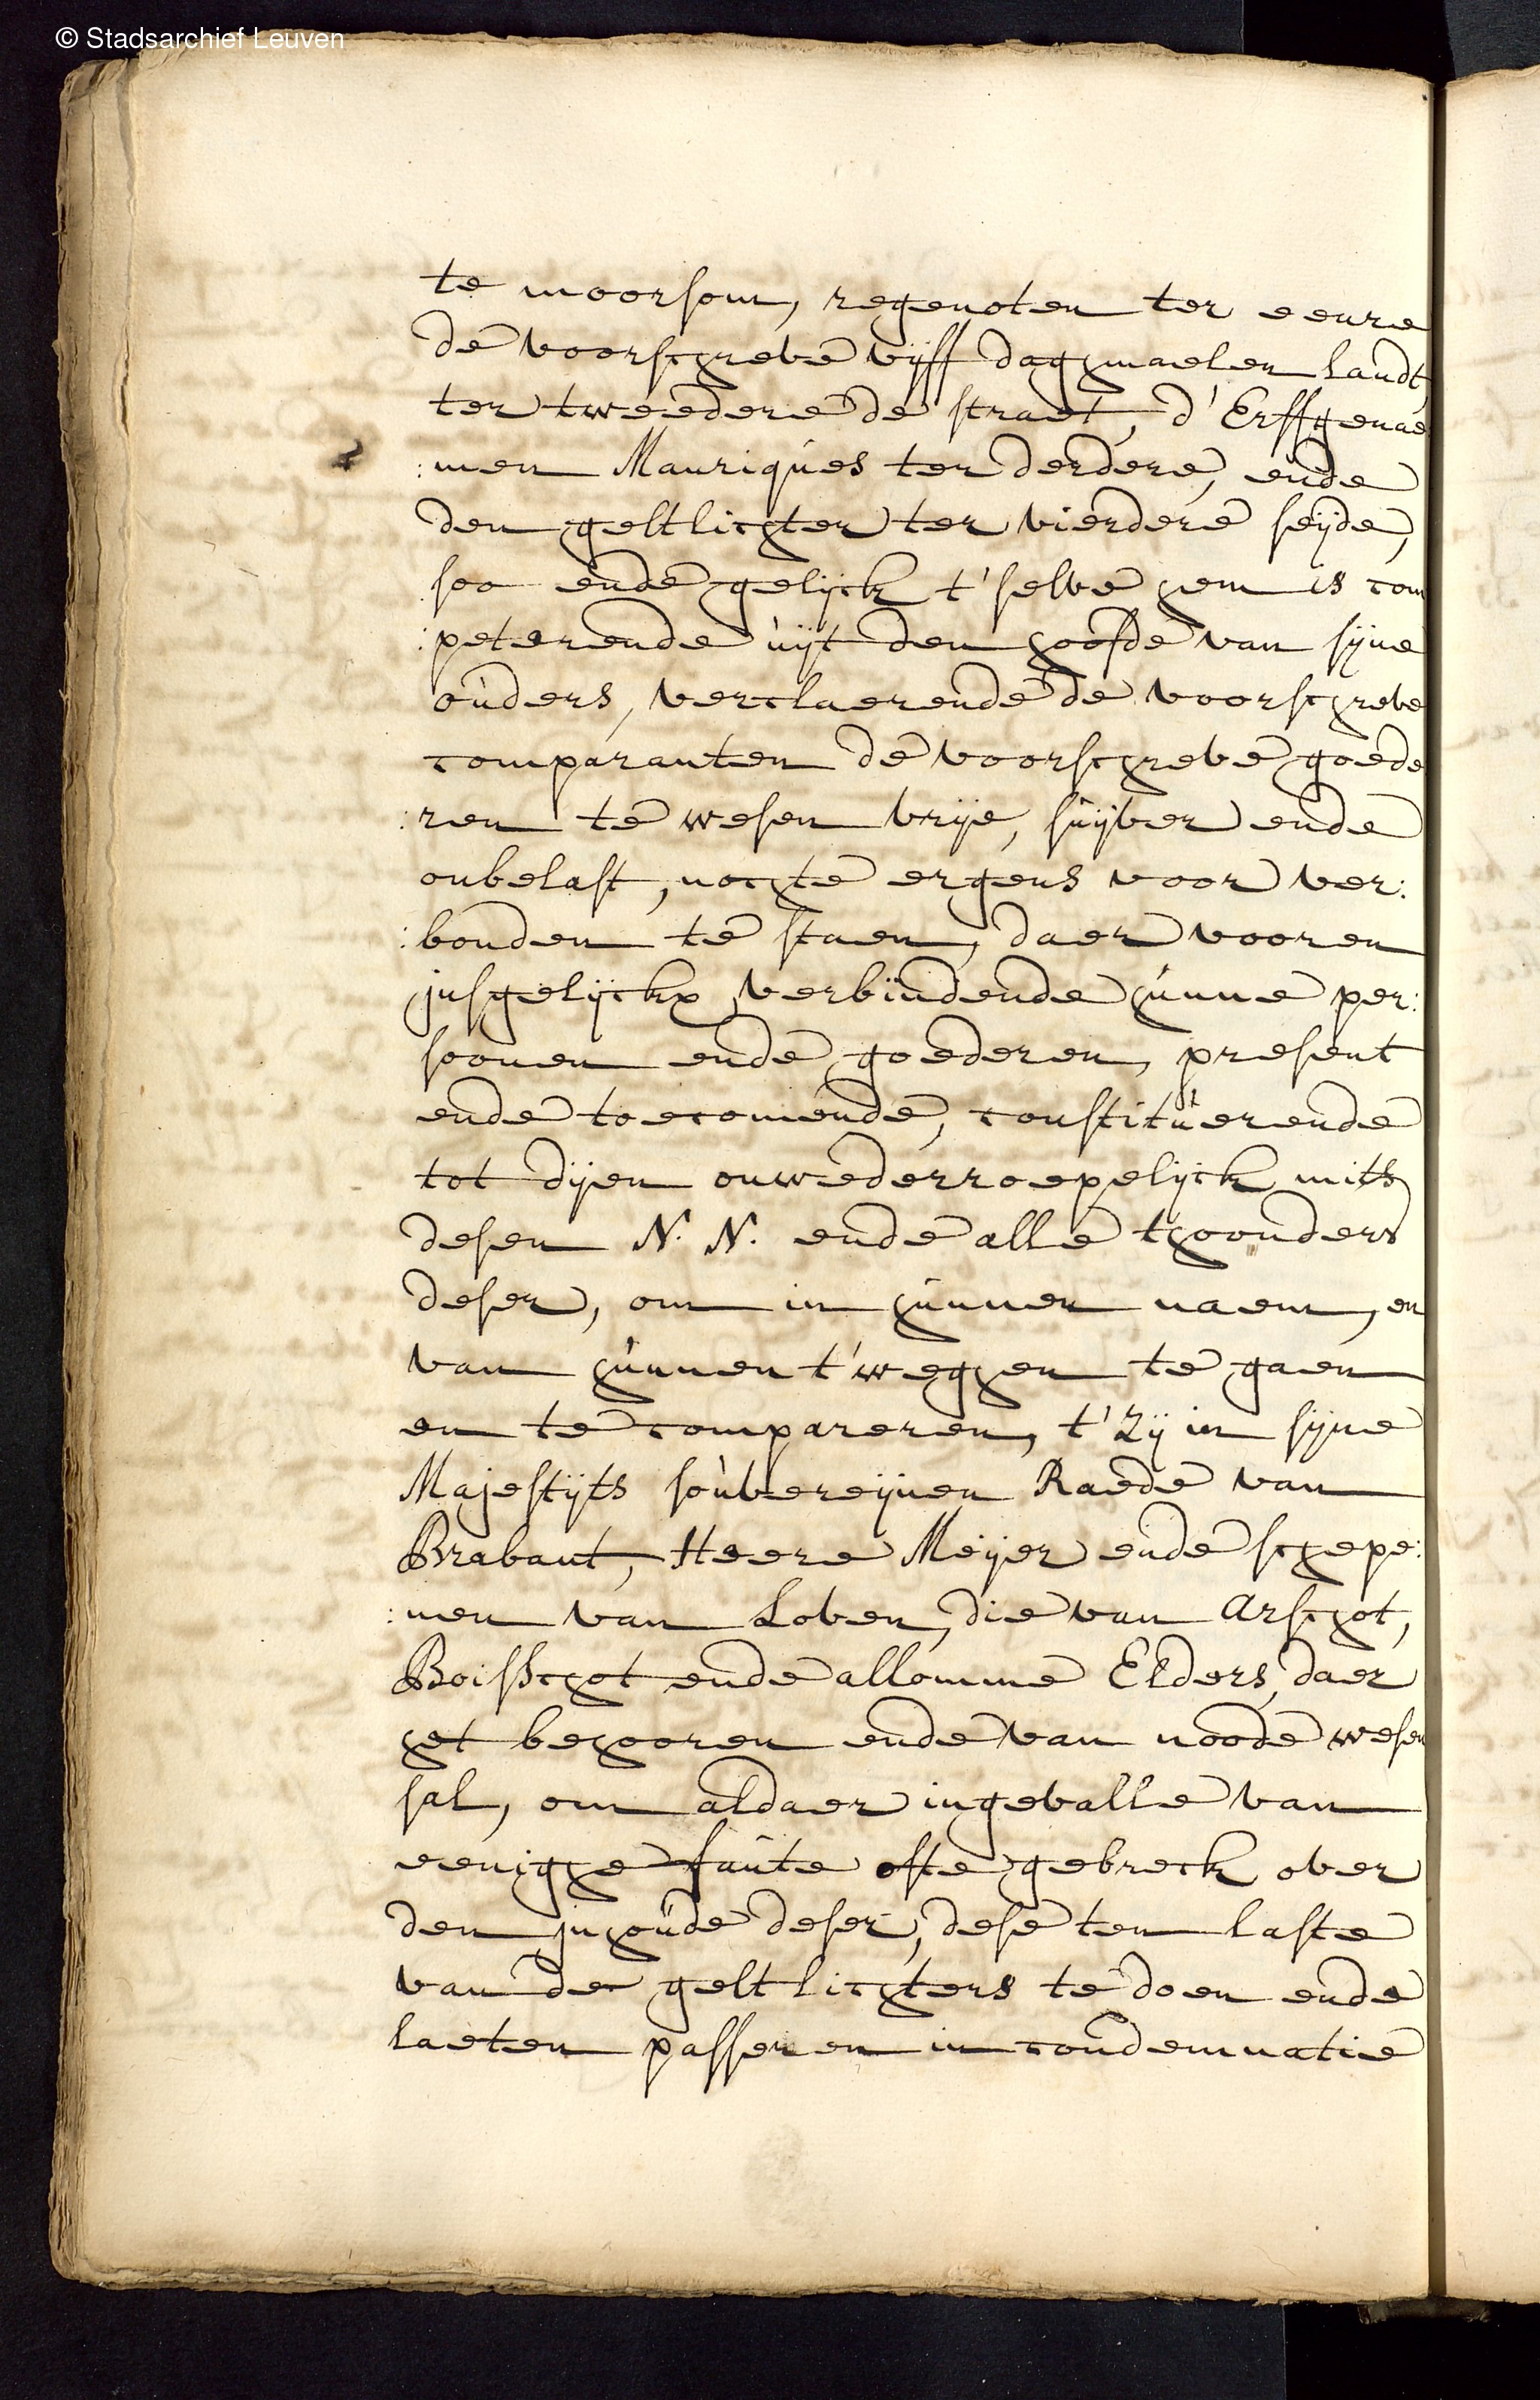 © Stadsarchief Leuven
te moorsom, regenoten ter eenre
de voorschreve vijff daghmaelen landt,
ter tweedere de straet, d'Erffgenae
:men Manriques ter derdere, ende
den geltlichter ter vierdere seijde,
soo ende gelijck t'selve hem is com
:peterende uijt den hoofde van sijne
ouders, verclaerende de voorschreve
comparanten de voorschreve goede
:ren te wesen vrije, suijver ende
onbelast, nochte ergens voor ver:
:bonden te staen, daer vooren
jnsgelijckx verbindende hunne per:
soonen ende goederen, present
ende toecomende, constituerende
tot dijen onwederroepelijck mits
desen N. N. ende alle thoonders
deser, om in hunnen naem, en
van hunnen t'weghen te gaen
en te compareren, t'Zij in sijne
Majestijts souvereijnen Raede van
Brabant, Heere Meijer ende schepe:
:nen van Loven, die van Arschot,
Boisschot ende allomme Elders, daer
het behooren ende van noode wesen
sal, om aldaer ingevalle van
eenighe faute ofte gebreck over
den jnhoude deser, dese ten laste
van de geltlichters te doen ende
laeten passeren in condemnatie